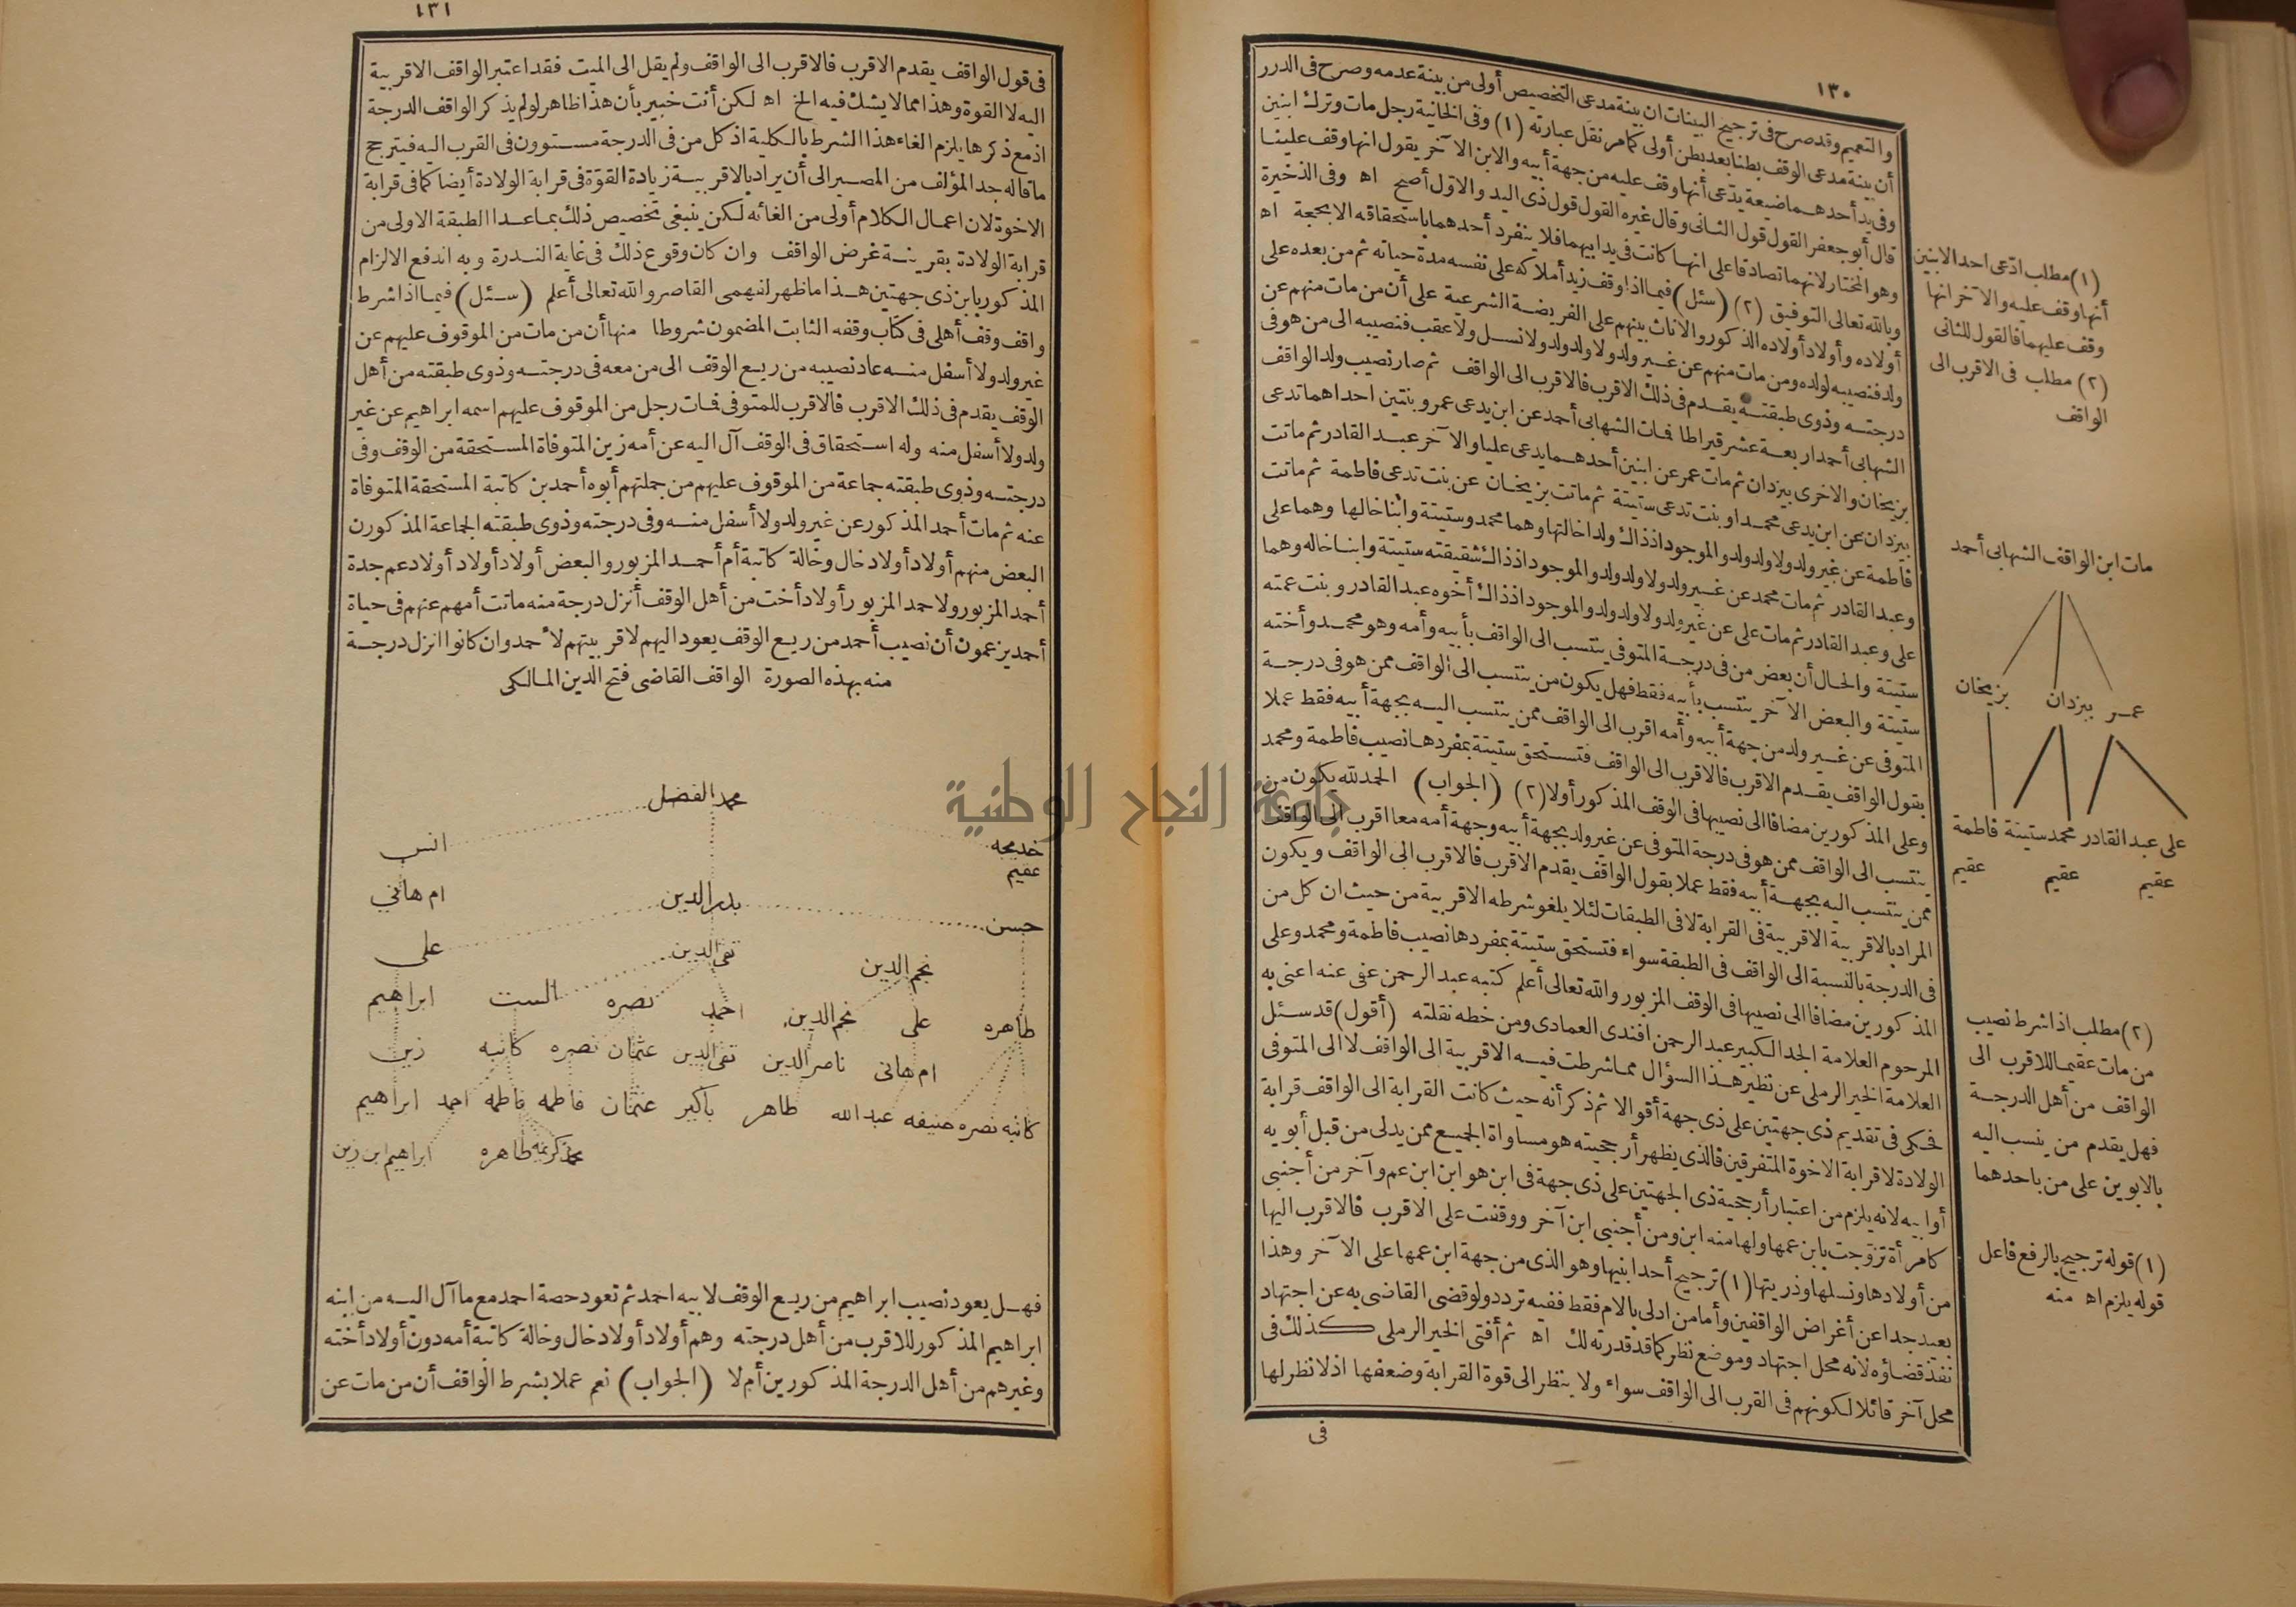 ١٣٠
والتعميم وقد صرح فى ترجيح البينات ان بينة مدعى التخصيص أولى من بينة عدمه وصرح فى الدرر
أن بينة مدعى الوقف بطنا بعد بطن أولى كما مر نقل عبارته (١) وفى الخانية رجل مات وترك ابنين
وفى يد أحدهما ضيعة يدعى أنها وقف عليه من جهة أبيه والابن الآخر يقول انها وقف علينا
قال أبو جعفر القول قول الثانى وقال غيره القول قول ذى اليد والاول أصح اه وفى الذخيرة
وهو المختار لانهما تصادقا على انها كانت فى يد أبيهما فلا ينفرد أحدهما باستحقاقه الا بحجة اه
وبالله تعالى التوفيق (٢) (سئل) فيما اذا وقف زيد أملاكه على نفسه مدة حياته ثم من بعده على
أولاده وأولاد أولاده الذكور والاناث بينهم على الفريضة الشرعية على أن من مات منهم عن
ولد فنصيبه لولده ومن مات منهم عن غير ولد ولا ولد ولد ولا نسل ولا عقب فنصيبه الى من هو فى
درجته وذوى طبقته يقدم فى ذلك الاقرب فالاقرب الى الواقف ثم صار نصيب ولد الواقف
الشهابى أحمد اربعة عشر قيراطا فمات الشهابى أحمد عن ابن يدعى عمر وبنتين احداهما تدعى
بزيخان والاخرى بيزدان ثم مات عمر عن ابنين أحدهما يدعى عليا والآخر عبد القادر ثم ماتت
بيزدان عن ابن يدعى محمدا وبنت تدعى ستيتة ثم ماتت بزيخان عن بنت تدعى فاطمة ثم ماتت
فاطمة عن غير ولد ولا ولد ولد والموجود اذ ذاك ولدا خالتها وهما محمد وستيتة وابنا خالها وهما على
وعبد القادر ثم مات محمد عن غير ولد ولا ولد ولد والموجود اذ ذاك شقيقته ستيتة وابنا خاله وهما
على وعبد القادر ثم مات على عن غير ولد ولا ولد ولد والموجود اذ ذاك أخوه عبد القادر وبنت عمته
ستيتة والحال أن بعض من فى درجة المتوفى ينتسب الى الواقف بأبيه وأمه وهو محمد وأخته
ستيتة والبعض الآخر ينتسب بأبيه فقط فهل يكون من ينتسب الى الواقف ممن هو فى درجة
المتوفى عن غير ولد من جهة أبيه وأمه اقرب الى الواقف ممن ينتسب اليه بجهة أبيه فقط عملا
بقول الواقف يقدم الاقرب فالاقرب الى الواقف فتستحق ستيتة بمفردها نصيب فاطمة ومحمد
وعلى المذكورين مضافا الى نصيبها فى الوقف المذكور أولا (٢) (الجواب) الحمد لله يكون من
ينتسب الى الواقف ممن هو فى درجة المتوفى عن غير ولد بجهة أبيه وجهة أمه معا اقرب الى الواقف
ممن ينتسب اليه بجهة أبيه فقط عملا بقول الواقف يقدم الاقرب فالاقرب الى الواقف ويكون
المراد بالاقربية الاقربية فى القرابة لا فى الطبقات لئلا يلغو شرطه الاقربية من حيث ان كل من
فى الدرجة بالنسبة الى الواقف فى الطبقة سواء فتستحق ستيتة بمفردها نصيب فاطمة ومحمد وعلى
المذكورين مضافا الى نصيبها فى الوقف المزبور والله تعالى أعلم كتبه عبد الرحمن عفى عنه اعنى به
المرحوم العلامة الجد الكبير عبد الرحمن افندى العمادى ومن خطه نقلته (أقول) قد سئل
العلامة الخير الرملى عن نظير هذا السؤال مما شرطت فيه الاقربية الى الواقف لا الى المتوفى
فحكى فى تقديم ذى جهتين على ذى جهة أقوالا ثم ذكر أنه حيث كانت القرابة الى الواقف قرابة
الولادة لا قرابة الاخوة المتفرقين فالذى يظهر أرجحيته هو مساواة الجميع ممن يدلى من قبل أبويه
أو ابيه لانه يلزم من اعتبار أرجحية ذى الجهتين على ذى جهة فى ابن هو ابن ابن عم وآخر من أجنبى
كامرأة تزوجت بابن عمها ولها منه ابن ومن أجنبى ابن آخر ووقفت على الاقرب فالاقرب اليها
من أولادها ونسلها وذريتها (١) ترجيح أحد ابنيها وهو الذى من جهة ابن عمها على الآخر وهذا
بعيد جدا عن أغراض الواقفين وأما من ادلى بالام فقط ففيه تردد ولو قضى القاضى به عن اجتهاد
نفذ قضاؤه لانه محل اجتهاد وموضع نظر كما قد قدرته لك اه ثم أفتى الخير الرملى كذلك فى
محل آخر قائلا لكونهم فى القرب الى الواقف سواء ولا ينظر الى قوة القرابة وضعفها اذ لا نظر لها
فى
(١) مطلب ادعى احد الابنين
أنها وقف عليه والآخر انها
وقف عليهما فالقول للثانى
(٢) مطلب فى الاقرب الى
الواقف
مات ابن الواقف الشهابى أحمد
عمر بيزدان بزيخان
على عبد القادر محمد ستيتة فاطمة
عقيم عقيم عقيم
(٢) مطلب اذا شرط نصيب
من مات عقيما للاقرب الى
الواقف من أهل الدرجة
فهل يقدم من ينسب اليه
بالابوين على من باحدهما
(١) قوله ترجيح بالرفع فاعل
قوله يلزم اه منه
١٣١
فى قول الواقف يقدم الاقرب فالاقرب الى الواقف ولم يقل الى الميت فقد اعتبر الواقف الاقربية
اليه لا القوة وهذا مما لا يشك فيه الخ اه لكن أنت خبير بأن هذا ظاهر لو لم يذكر الواقف الدرجة
اذ مع ذكرها يلزم الغاء هذا الشرط بالكلية اذ كل من فى الدرجة مستوون فى القرب اليه فيترجح
ما قاله جد المؤلف من المصير الى أن يراد بالاقربية زيادة القوة فى قرابة الولادة أيضا كما فى قرابة
الاخوة لان اعمال الكلام أولى من الغائه لكن ينبغى تخصيص ذلك بما عدا الطبقة الاولى من
قرابة الولادة بقرينة غرض الواقف وان كان وقوع ذلك فى غاية الندرة وبه اندفع الالزام
المذكور بابن ذى جهتين هذا ما ظهر لفهمى القاصر والله تعالى أعلم (سئل) فيما اذا شرط
واقف وقف أهلى فى كتاب وقفه الثابت المضمون شروطا منها أن من مات من الموقوف عليهم عن
غير ولد ولا أسفل منه عاد نصيبه من ريع الوقف الى من معه فى درجته وذوى طبقته من أهل
الوقف يقدم فى ذلك الاقرب فالاقرب للمتوفى فمات رجل من الموقوف عليهم اسمه ابراهيم عن غير
ولد ولا أسفل منه وله استحقاق فى الوقف آل اليه عن أمه زين المتوفاة المستحقة من الوقف وفى
درجته وذوى طبقته جماعة من الموقوف عليهم من جملتهم أبوه أحمد بن كاتبة المستحقة المتوفاة
عنه ثم مات أحمد المذكور عن غير ولد ولا أسفل منه وفى درجته وذوى طبقته الجماعة المذكورن
البعض منهم أولاد أولاد خال وخالة كاتبة أم أحمد المزبور والبعض أولاد أولاد أولاد عم جدة
أحمد المزبور ولاحمد المزبور أولاد أخت من أهل الوقف أنزل درجة منه ماتت أمهم عنهم فى حياة
أحمد يزعمون أن نصيب أحمد من ريع الوقف يعود اليهم لاقربيتهم لأحمد وان كانوا انزل درجة
منه بهذه الصورة الواقف القاضى فتح الدين المالكى
محمد الفضل
خديجه انس
عقيم
بدر الدين ام هاني
حسن
نجم الدين تقى الدين على
طاهره على نجم الدين احمد نصره الست ابراهيم
ام هانى ناصر الدين تقى الدين عثمان نصره كاتبه زين
كاتبه نصره حنيفه عبد الله طاهر باكير عثمان فاطمه فاطمه احمد ابراهيم
محمد كريمه طاهره ابراهيم ابن زين
فهل يعود نصيب ابراهيم من ريع الوقف لابيه احمد ثم تعود حصة احمد مع ما آل اليه من ابنه
ابراهيم المذكور للاقرب من أهل درجته وهم أولاد أولاد خال وخالة كاتبة أمه دون أولاد أخته
وغيرهم من أهل الدرجة المذكورين أم لا (الجواب) نعم عملا بشرط الواقف أن من مات عن
جامعة النجاح الوطنية